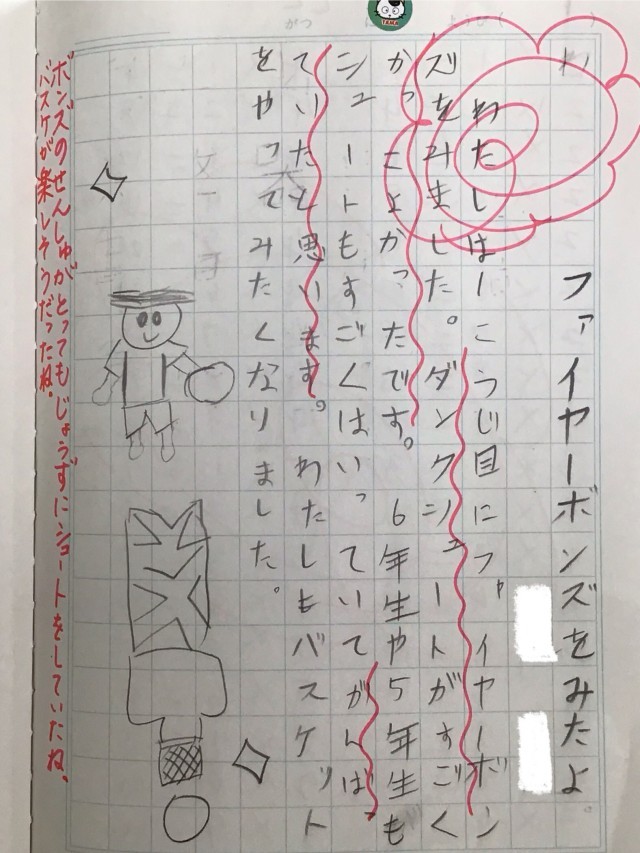 がつ
ようび(
TAMA
ファイヤーボンズをみたよ。
わたしは1こうじ目にファイヤーボン
ズをみました。ダンクシュートがすごく
かっこよかったです。6年生や5年生も
シュートもすごくはいっていてがんば
ていたと思います。わたしもバスケット
をやってみたくなりました。
ボンズのせんしゅがとってもじょうずにシュートをしていたね、
バスケが楽しそうだったね。